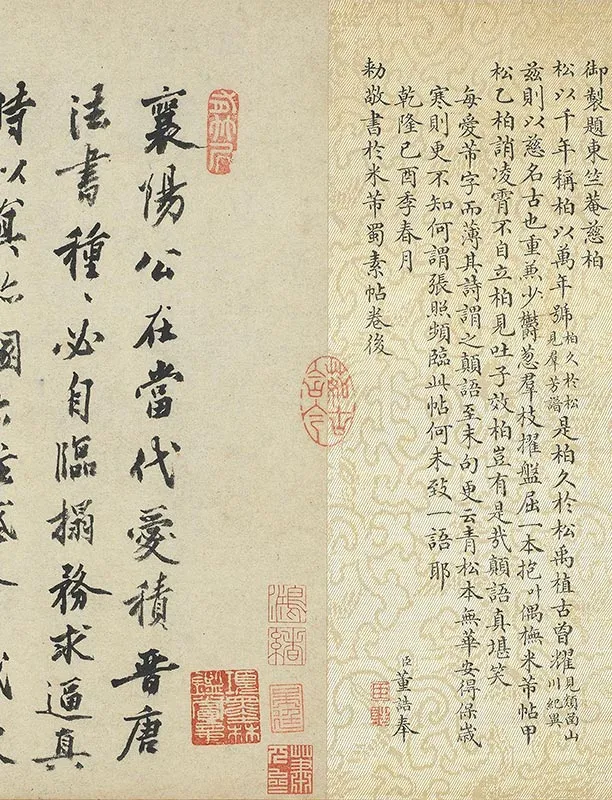 御製題東竺菴慈柏
松以千年稱柏以萬年號柏久於松見羣芳譜是柏久於松禹植古曾耀見山川紀異
茲則以慈名古也重兼少欝葱羣枝擢盤屈一本抱叶偶橅米芾帖甲
松乙柏誚凌霄不自立柏見吐子效柏豈有是哉顛語真堪笑
每愛芾字而薄其詩謂之顛語至末句更云青松本無華安得保歲
寒則更不知何謂張照頻臨此帖何未致一語耶
乾隆己酉季春月臣董誥奉
勅敬書於米芾蜀素帖卷後
茹古含今
鴻緒
項墨林鑑賞章
襄陽公在當代愛積晉唐
法書種種必自臨搨務求逼真
時以真